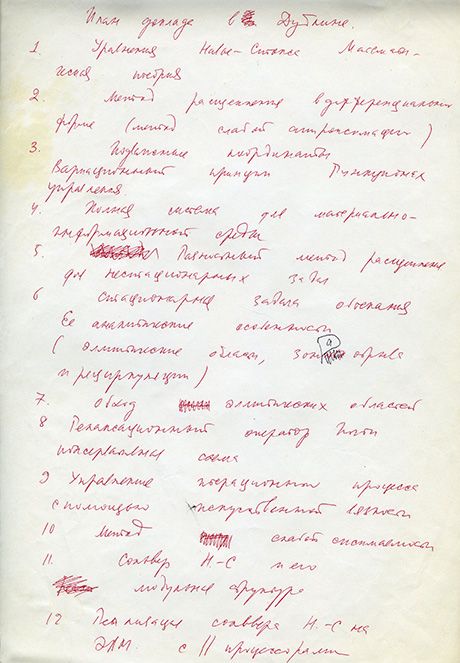 План доклада в Дублине.
1. Уравнения Навье-Стокса Математи-
ческая теория
2. Метод расщепления в дифференциальной
форме (метод слабой аппроксимации)
3. Подвижные координаты
Вариационный принцип Функционал
управления
4. Полная система для материально-
информационной среды
5. Разностный метод расщепления
для нестационарных задач
6 Стационарные задача обтекания
Ее аналитические особенности
(эллитические области, зона отрыва
и рециркуляции)
7. Обход эллитических областей
8 Релаксационный оператор Почти
консервативные схемы
9 Управление итерационного процесса
с помощью искусственной вязкости
10 Метод слабой сжимаемости
11. Солвер Н-С и его
модульная структура
12 Реализация солвера Н.-С на
ЭВМ. с || процессорами